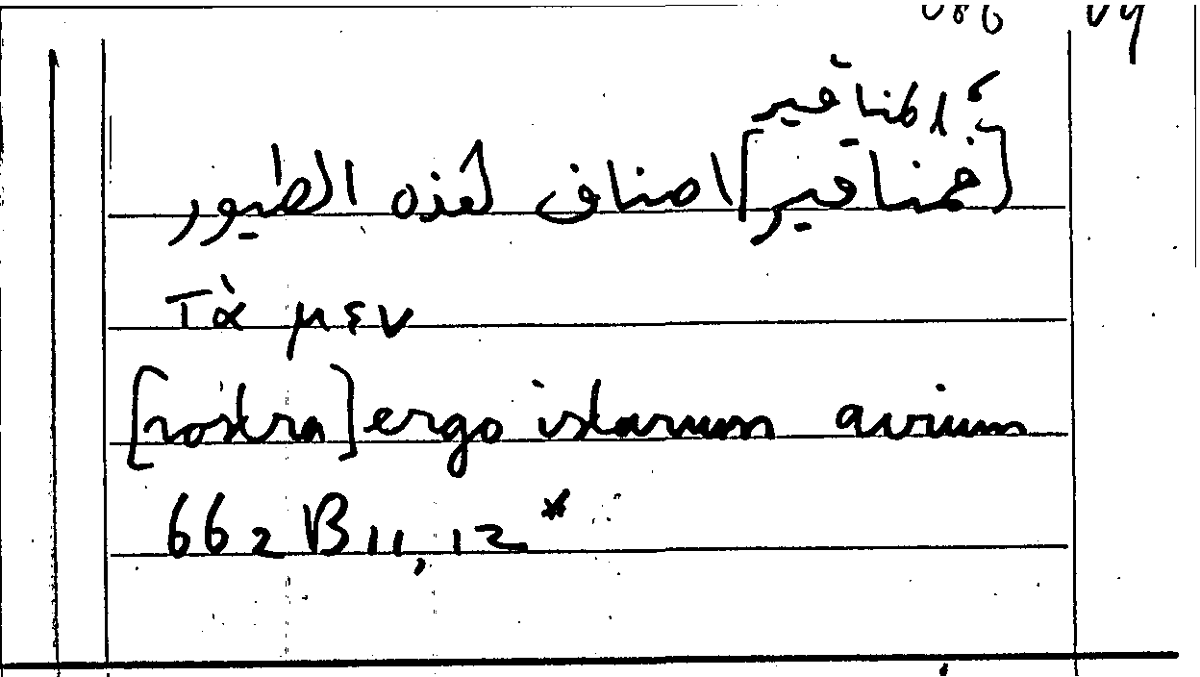 ؛ المناقير
[فمناقير] اصناف هذه الطيور
Τὰ μεν
[rostra] ergo istarum avium
662 B 11, 12*